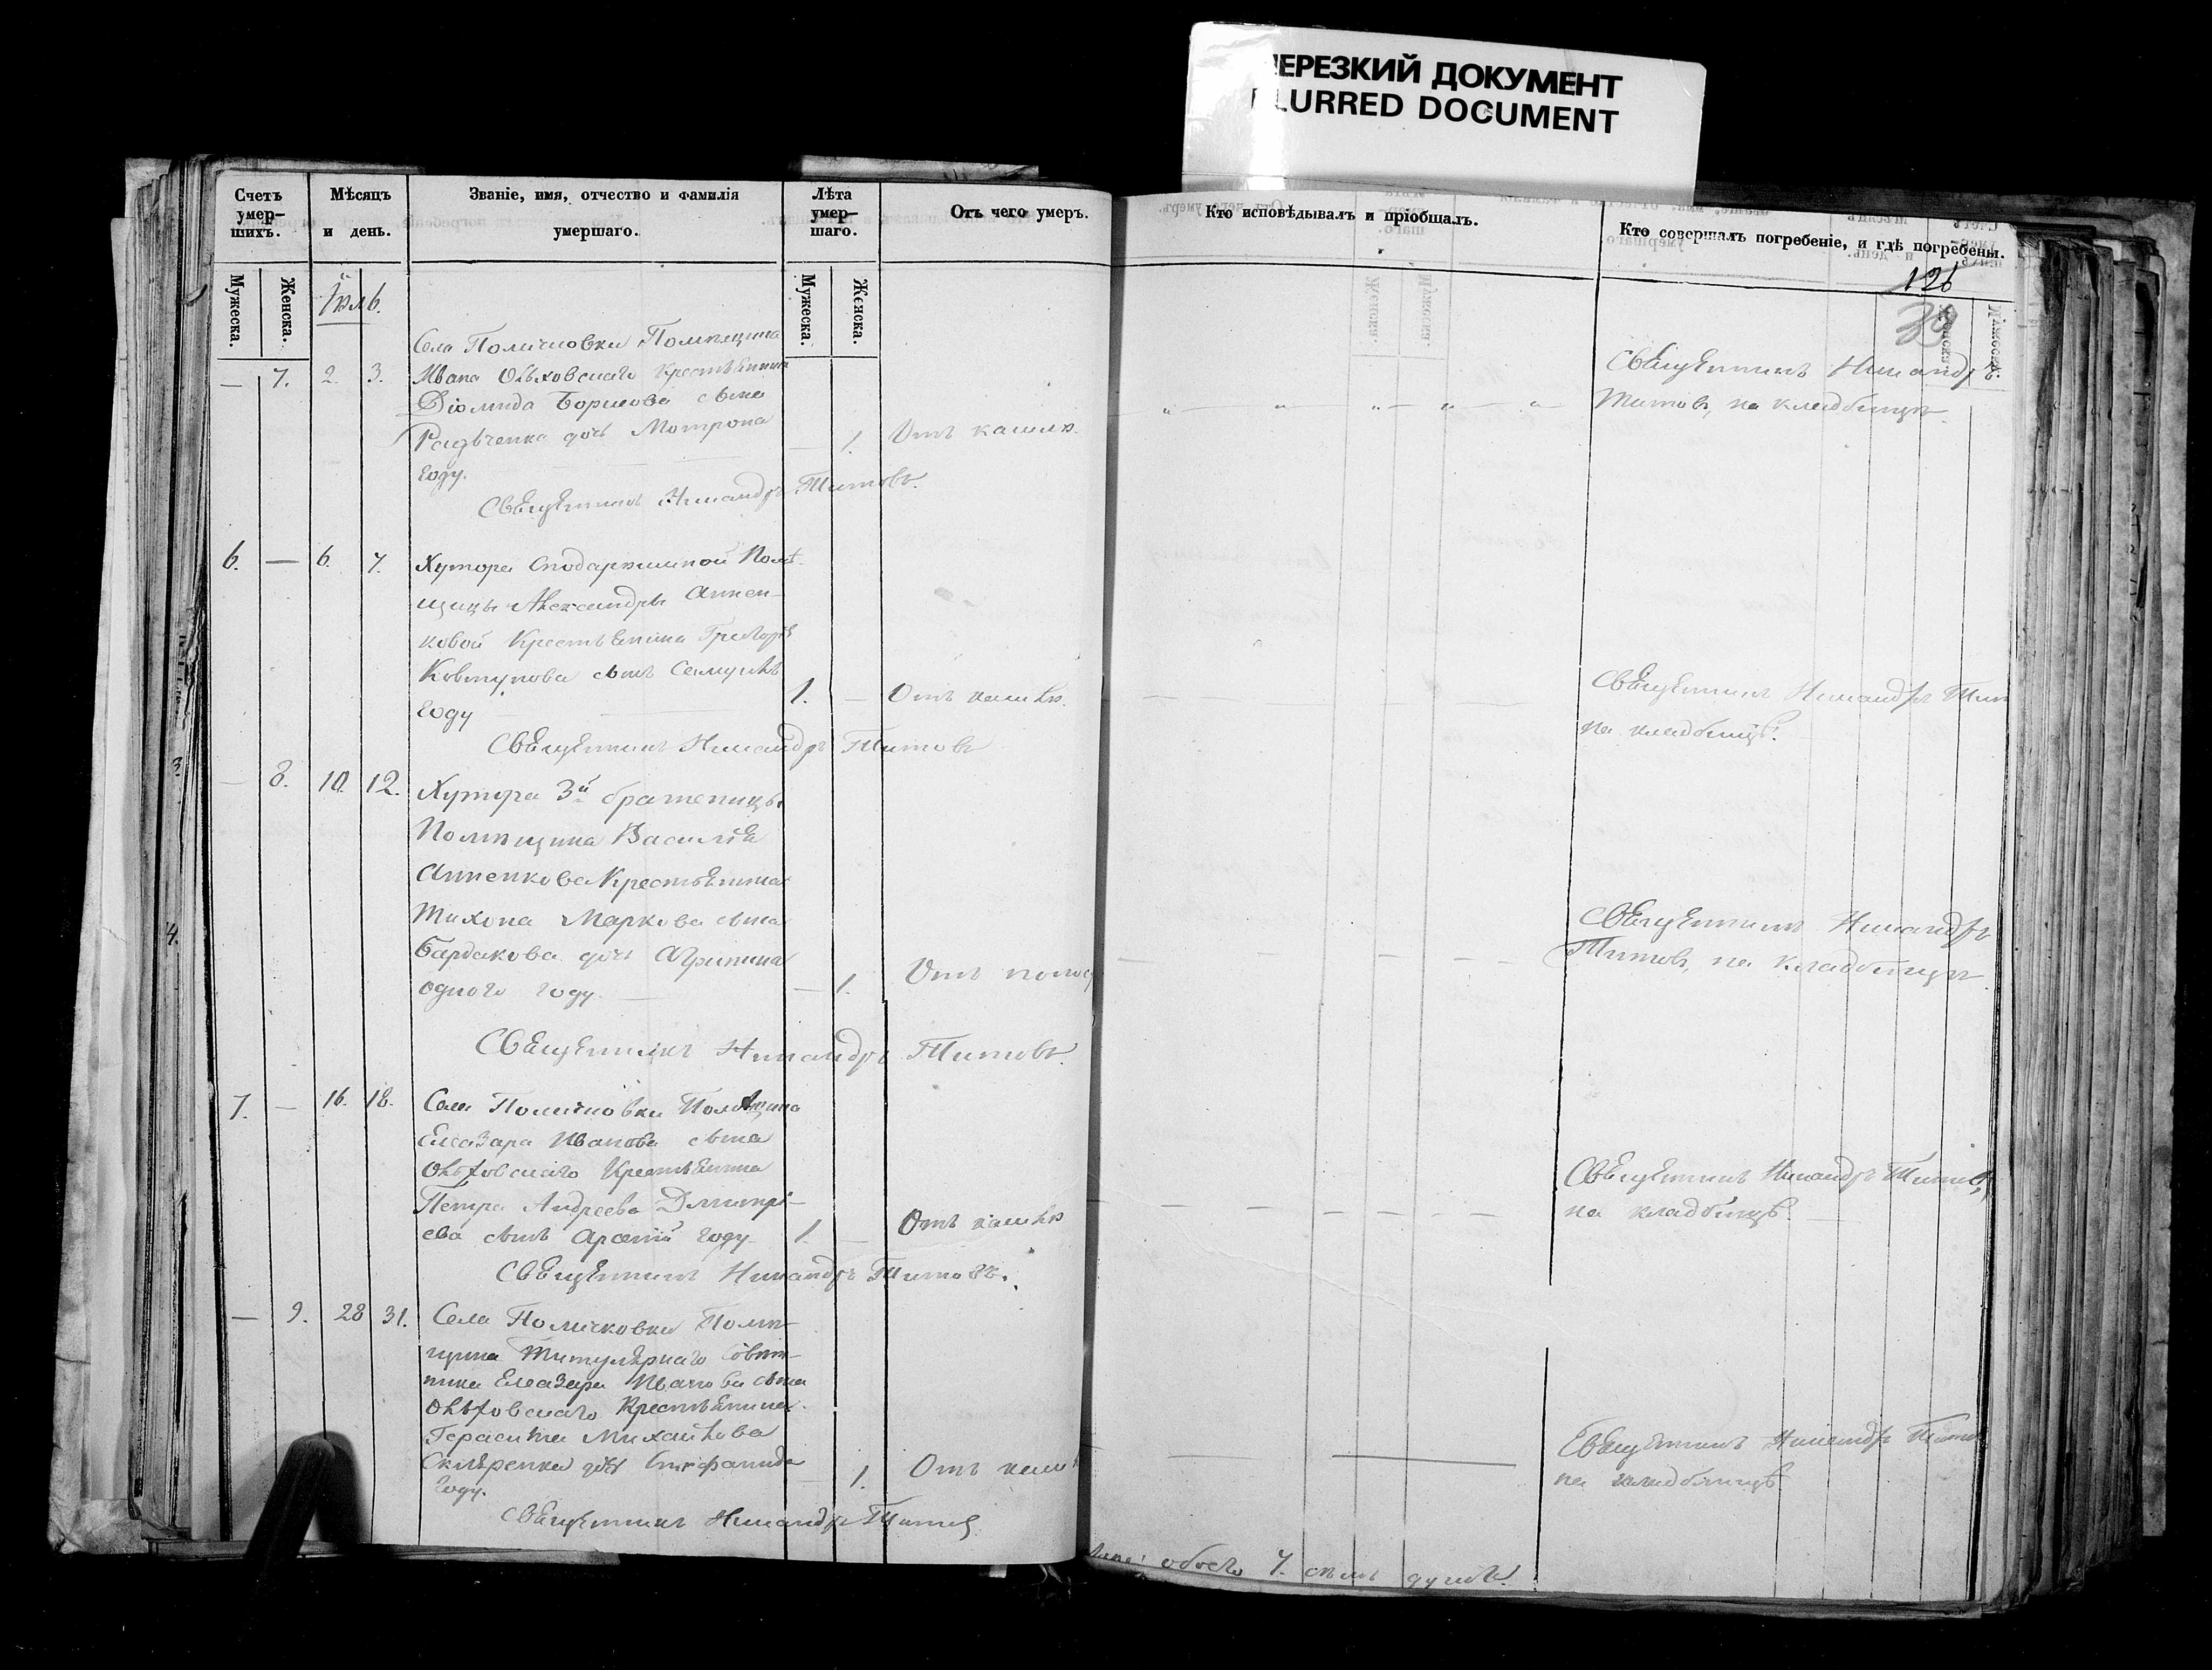 НЕРЕЗКИЙ ДОКУМЕНТ
BLURRED DOCUMENT
Счетъ умер-шихъ.
Мѣсяцъ и день.
Званіе, имя, отчество и фамилія умершаго.
Лѣта умер-шаго.
Отъ чего умеръ.
Кто исповѣдывалъ и пріобщалъ.
Кто совершалъ погребеніе, и гдѣ погребены.
Мужеска.
Женска.
Мужеска.
Женска.
126
39
Іюль.
Села Поличковки Помѣщика
— 7. 2. 3. Ивана Ольховскаго Крестьянина
Діомида Борисова сына
дочь Мотрона — 1. Отъ кашлю.
году.
Священникъ Никандръ Титовъ.
Священникъ Никандръ
Титовъ, на кладбищѣ.
6. — 6. 7. Хутора Помѣ-
щицы Александры Аннен-
ковой Крестьянина Григорія
Ковтунова сынъ Самуилъ
году 1. — Отъ кашлю.
Священникъ Никандръ Титовъ
Священникъ Никандръ Тит
на кладбищѣ.
— 8. 10. 12. Хутора 3й братеницы
Помѣщика Василія
Анненкова Крестьянина
Тихона Маркова сына
Бардакова дочь Агрипина
одного году. — 1. Отъ понос
Священникъ Никандръ Титовъ.
Священникъ Никандръ
Титовъ, на кладбищѣ.
7. — 16. 18. Села Поличковки Помѣщика
Елеазара Иванова сына
Ольховскаго Крестьянина
Петра Андреева Дмитрі-
ева сынъ Арсеній году 1. — Отъ кашлю
Священникъ Никандръ Титовъ.
Священникъ Никандръ Титовъ,
на кладбищѣ.
— 9. 28 31. Села Поличковки Помѣ-
щика Титулярнаго Совѣт-
ника Елеазара Иванова сына
Ольховскаго Крестьянина
Герасима Михайлова
Скляренка дочь Епифанида — 1. Отъ кашл
году.
Священникъ Никандръ Титовъ
Священникъ Никандръ Титов
на кладбищѣ
обоего 7. семь душъ.